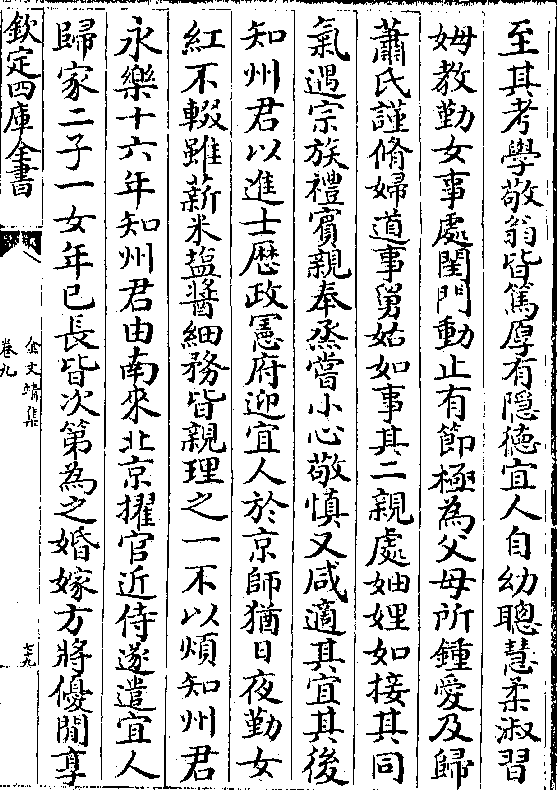 至其考學敬翁皆篤厚有隠徳宜人自幼聰慧柔淑習
姆教勤女事處閨門動止有節極為父母所鍾愛及歸
蕭氏謹脩婦道事舅姑如事其二親處妯娌如接其同
氣遇宗族禮賓親奉烝嘗小心敬慎又咸適其宜其後
知州君以進士歴政憲府迎宜人於京師猶日夜勤女
紅不輟雖薪米鹽醬細務皆親理之一不以煩知州君
永樂十六年知州君由南來北京擢官近侍遂遣宜人
歸家二子一女年已長皆次第為之婚嫁方將優閒享
欽定四庫全書
金文靖集
卷九